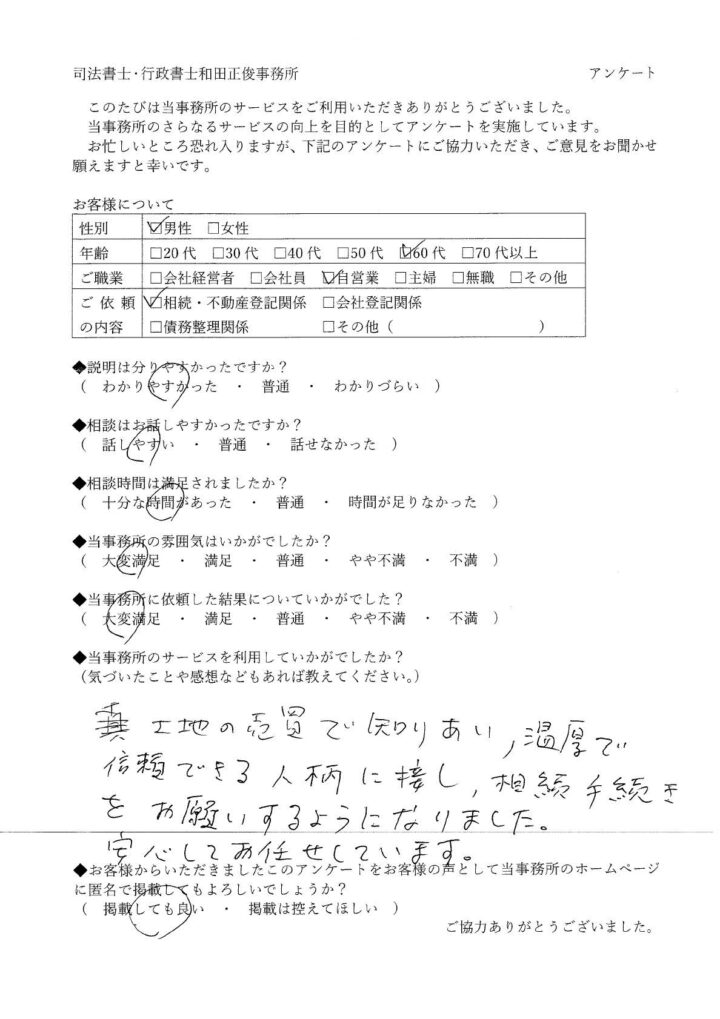 司法書士・行政書士和田正俊事務所 アンケート
このたびは当事務所のサービスをご利用いただきありがとうございました。
当事務所のさらなるサービスの向上を目的としてアンケートを実施しています。
お忙しいところ恐れ入りますが、下記のアンケートにご協力いただき、ご意見をお聞かせ
願えますと幸いです。
お客様について
性別 ☑男性 □女性
年齢 □20代 □30代 □40代 □50代 ☑60代 □70代以上
ご職業 □会社経営者 □会社員 ☑自営業 □主婦 □無職 □その他
ご依頼 ☑相続・不動産登記関係 □会社登記関係
の内容 □債務整理関係 □その他( )
◆説明は分りやすかったですか？
( わかりやすかった ・ 普通 ・ わかりづらい )
◆相談はお話しやすかったですか？
( 話しやすい ・ 普通 ・ 話せなかった )
◆相談時間は満足されましたか？
( 十分な時間があった ・ 普通 ・ 時間が足りなかった )
◆当事務所の雰囲気はいかがでしたか？
( 大変満足 ・ 満足 ・ 普通 ・ やや不満 ・ 不満 )
◆当事務所に依頼した結果についていかがでした？
( 大変満足 ・ 満足 ・ 普通 ・ やや不満 ・ 不満 )
◆当事務所のサービスを利用していかがでしたか？
(気づいたことや感想などもあれば教えてください。)
土地の売買で知りあい,温厚で
信頼できる人柄に接し,相続手続き
をお願いするようになりました。
安心してお任せしています。
◆お客様からいただきましたこのアンケートをお客様の声として当事務所のホームページ
に匿名で掲載してもよろしいでしょうか？
( 掲載しても良い ・ 掲載は控えてほしい )
ご協力ありがとうございました。